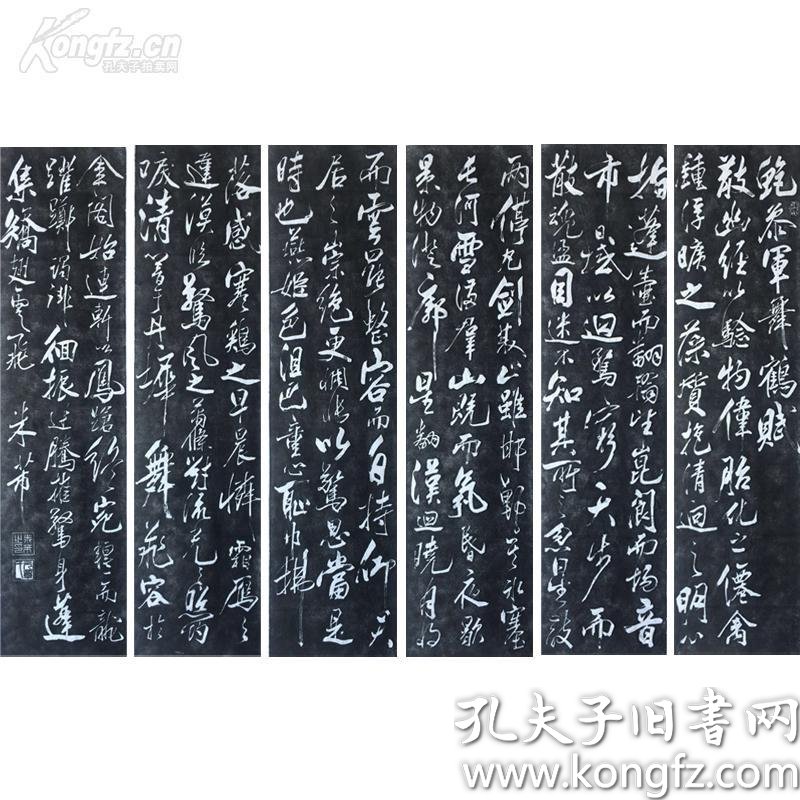 Kongfz.cn
孔夫子拍卖网
鮑參軍舞鶴賦
散幽經以驗物偉胎化之僊禽
鍾浮曠之藻質抱清迥之明心
指蓬壺而翻翰望崑閬而揚音
帀日域以迴騖窮天步而
散魂盪目迷不知其所之忽星離
兩停兀劍雙止雖邯鄲冰塞
長河雪滿羣山既而氛昏夜歇
景物澄廓星翻漢迴曉月將
而雲罷整容而自持仰天
居之崇絕更惆悵以驚思當是
時也燕姬色沮巴童心恥巾拂
落感寒鷄之早晨憐霜雁之
違漠臨驚風之蕭條對流光之照灼
唳清響於丹墀舞飛容於
金閣始連軒以鳳蹌終宛轉而龍
躍躑躅徘徊振迅騰摧驚身蓬
集矯翅雪飛
米芾
孔夫子旧书网
www.kongfz.com